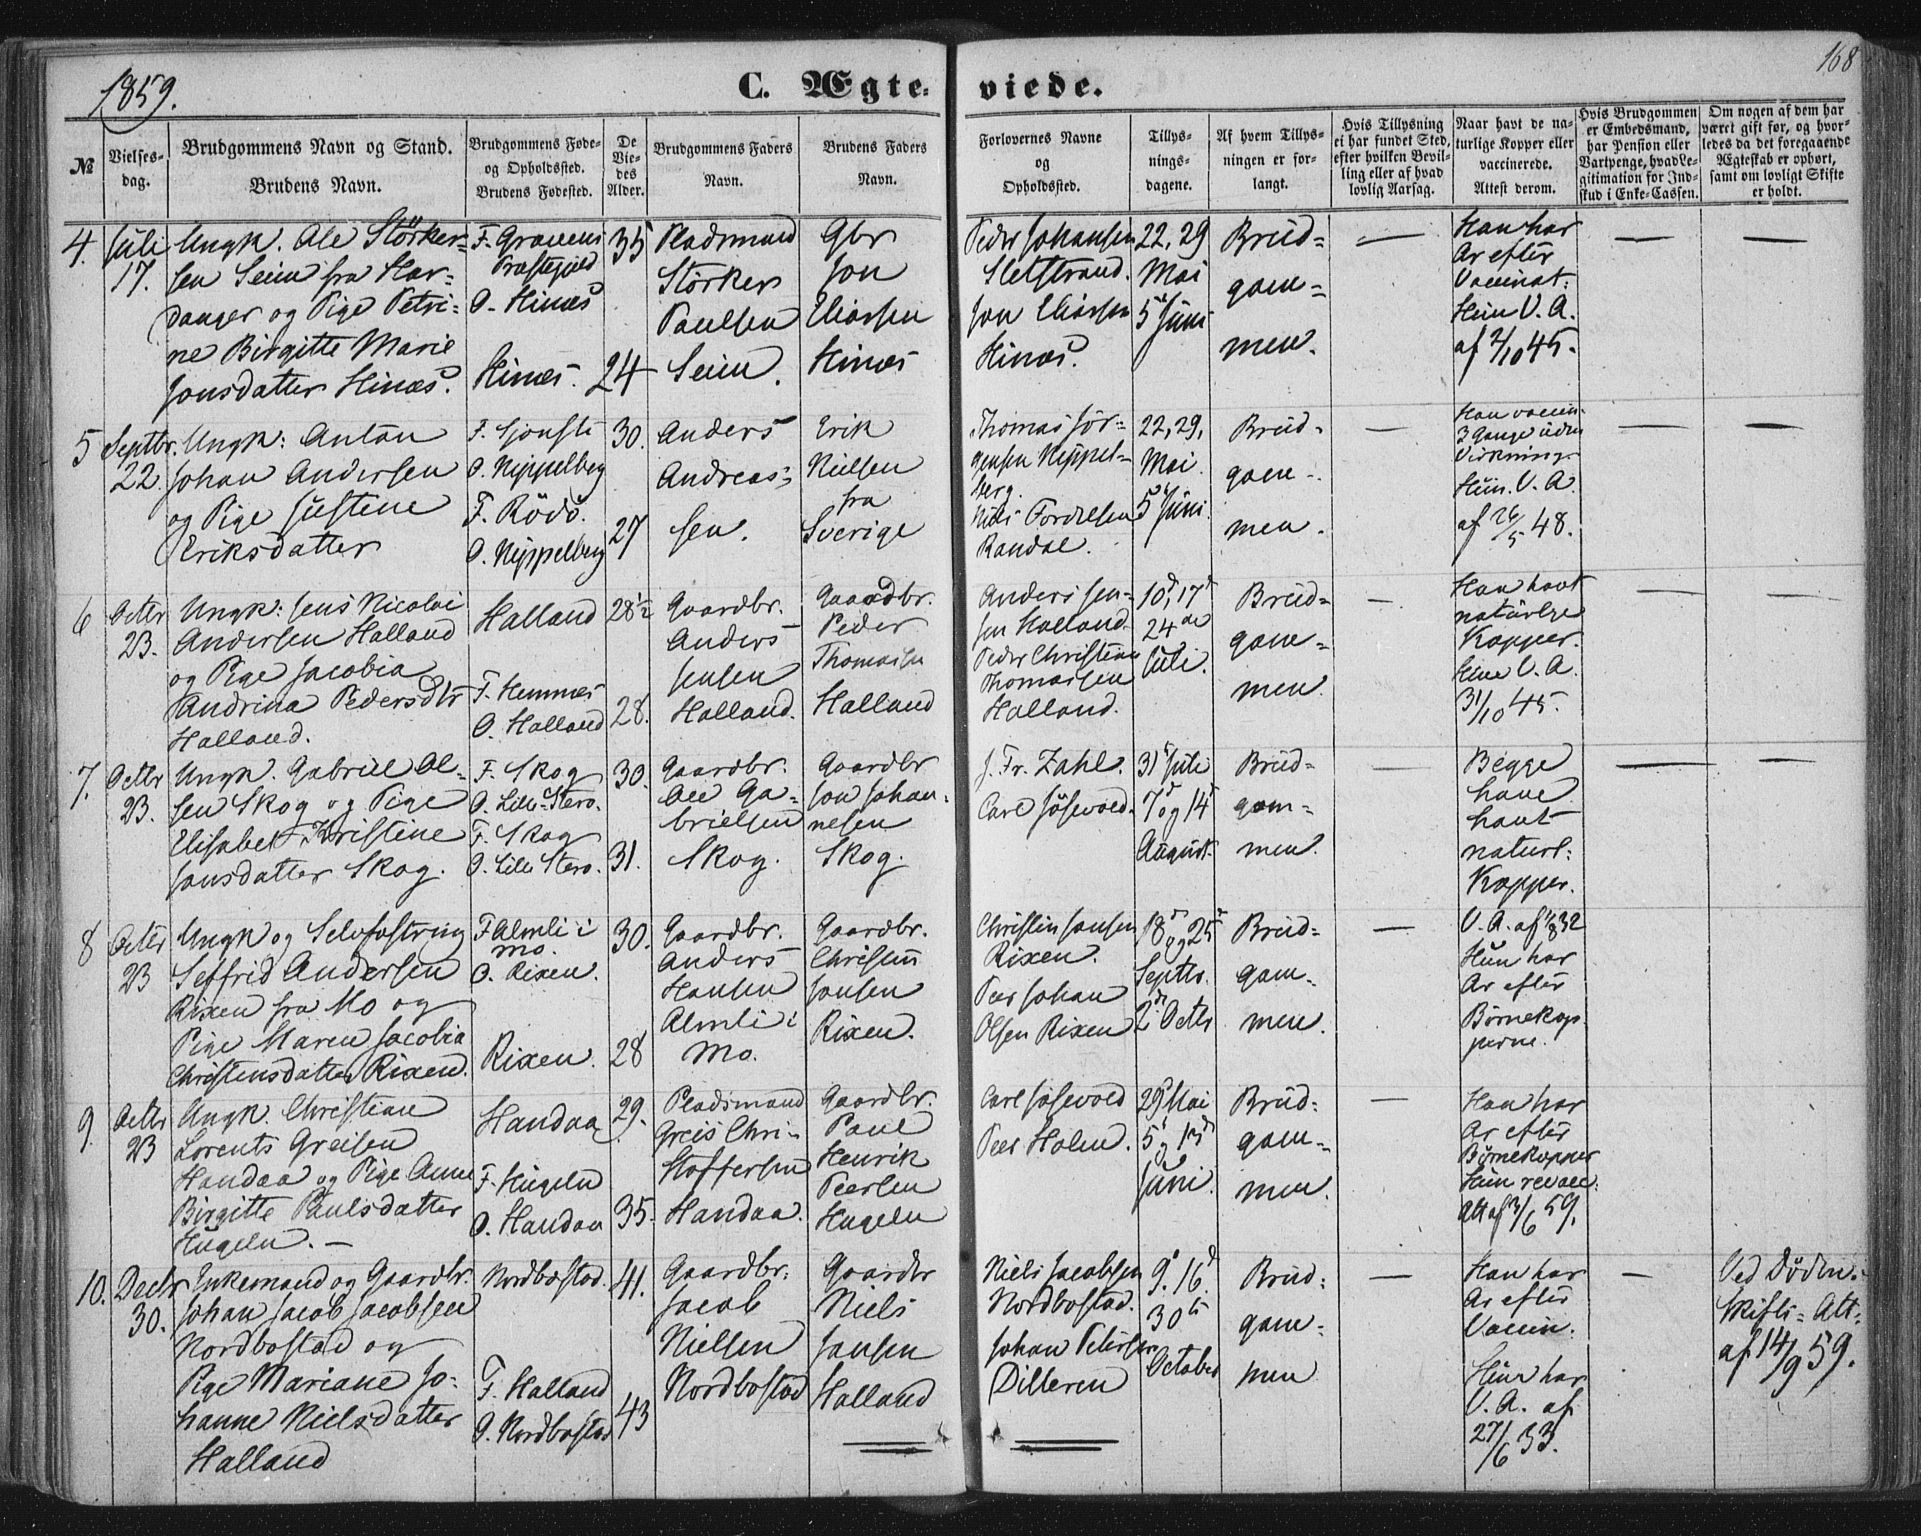 1859.
C. Ægte-
viede.
168
№
Vielses-
dag.
Brudgommens Navn og Stand.
Brudens Navn.
Brudgommens Føde-
og Opholdssted.
Brudens Fødested.
De
Vie-
des
Alder.
Brudgommens Faders
Navn.
Brudens Faders
Navn.
Forlovernes Navne
og
Opholdssted.
Tillys-
nings-
dagene.
Af hvem Tillys-
ningen er for-
langt.
Hvis Tillysning
ei har fundet Sted,
efter hvilken Bevil-
ling eller af hvad
lovlig Aarsag.
Naar havt de na-
turlige Kopper eller
vaccinerede.
Attest derom.
Hvis Brudgommen
er Embedsmand,
har Pension eller
Vartpenge, hvad Le-
gitimation for Ind-
skud i Enke-Cassen.
Om nogen af dem har
været gift før, og hvor-
ledes da det foregaaende
Ægteskab er ophørt,
samt om lovligt Skifte
er holdt.
4.
Juli
17.
Ungk. Ole Störker-
sen Seim fra Har-
danger og Pige Petri-
ne Birgitte Marie
Jonsdatter Hinæs.
F. Gravens
Præstegjeld
O. Hinæs
Hinæs.
35
24
Pladsmand
Störker
Paulsen
Seim.
Gbr
Jon
Eliassen
Hinæs
Peder Johansen
Sletstrand.
Jon Eliassen
Hinæs.
22, 29
Mai
5 Juni
Brud-
gom-
men.
—
Han har
Ar efter
Vaccinat.
Hun V. A.
af 2/10 45.
—
—
5
Septbr.
22.
Ungk: Anton
Johan Andersen
og Pige Justine
Eriksdatter
F. Sjonsti
O. Nippelberg
F. Rödö.
O. Nippelberg
30.
27
Anders
Andreas-
sen.
Erik
Nielsen
fra
Sverige
Thomas Jör-
gensen Nippel-
berg.
Niels Tordesen
Randal.
22, 29,
Mai.
5 Juni.
Brud-
gom-
men.
—
Han vaccin.
3 Gange uden
Virkning.
Hun. V. A.
af 26/5 48.
—
—
6
Octbr
23.
Ungk: Jens Nicolai
Andersen Halland
og Pige Jacobia
Andrina Pedersdtr
Halland.
Halland
F. Hemnes
O. Halland
28½
28.
Gaardbr.
Anders
Jensen
Halland.
Gaardbr.
Peder
Thomassen
Halland
Anders Jen-
sen Halland.
Peder Christian
Thomassen
Halland.
10, 17
24de
Juli.
Brud-
gom-
men.
—
Han havt
naturlige
Kopper.
Hun V. A.
31/10 45.
—
—
7.
Octbr
23.
Ungk. Gabriel Ol-
sen Skog og Pige
Elisabet Kristine
Jonsdatter Skog.
F. Skog
O. Lille Stero.
F. Skog
O. Lille Stero.
30.
31.
Gaardbr.
Ole Ga-
brielsen
Skog.
Gaardbr
Jon Johan-
nesen
Skog.
J. Fr. Zahl.
Carl Jösevold
31 Juli
7 og 14
August.
Brud-
gom-
men.
—
Begge
have
havt
naturl:
Kopper.
—
—
8
Octbr
23
Ungk og Selvfostring
Seffrid Andersen
Rixen fra Mo og
Pige Maren Jacobia
Christensdatter Rixen.
F Almli i
Mo.
O. Rixen.
Rixen.
30.
28
Gaardbr.
Anders
Hansen
Almli i
Mo.
Gaardbr.
Christen
Jonsen
Rixen.
Christen Jonsen
Rixen.
Peer Johan
Olsen Rixen
18 og 25
Septbr.
2 Octbr
Brud-
gom-
men.
—
V. A. af 1/8 32
Hun har
Ar efter
Børnekop-
perne.
9.
Octbr
23
Ungk. Christian
Lorents Greisen
Handaa og Pige Anne
Birgitte Paulsdatter
Hugeln. —
Handaa
F. Hugeln
O. Handaa
29.
35.
Pladsmand
Greis Chri-
stoffersen
Handaa.
Gaardbr.
Paul
Henrik
Peersen
Hugeln
Carl Jösevold
Peer Holm.
29 Mai
5 og 13
Juni.
Brud-
gom-
men.
—
Han har
Ar efter
Børnekopper
Hun revacc.
Att af 3/6 59.
10.
Decbr
30.
Enkemand og Gaardbr.
Johan Jacob Jacobsen
Nordbostad og
Pige Mariane Jo-
hanne Nielsdatter
Halland
Nordbostad.
F. Halland
O. Nordbostad
41.
43
Gaardbr.
Jacob
Nielsen
Nordbostad
Gaardbr
Niels
Jansen
Halland
Niels Jacobsen
Nordbostad.
Johan Petersen
Dilleren
9. 16
30
October
Brud-
gom-
men
—
Han har
Ar efter
Vaccin.
Hun har
V. A. af
27/6 33.
—
Ved Døden.
Skifts-Att.
af 14/9 59.